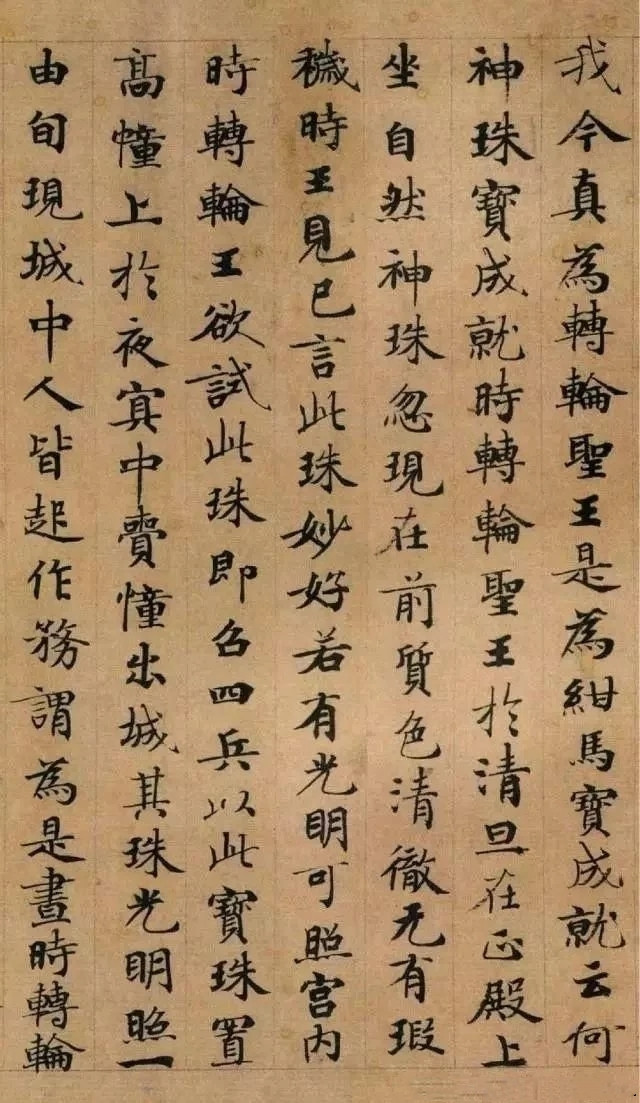 我今真為轉輪聖王是為紺馬寶成就云何
神珠寶成就時轉輪聖王於清旦在正殿上
坐自然神珠忽現在前質色清徹无有瑕
穢時王見已言此珠妙好若有光明可照宫内
時轉輪王欲試此珠即召四兵以此寶珠置
髙幢上於夜冥中賷幢出城其珠光明照一
由旬現城中人皆起作務謂為是晝時轉輪